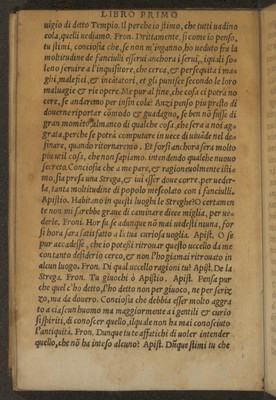 LIBRO PRIMO
uigio di detto Tempio. Il perche io stimo, che tutti uadino
cola, quelli uediamo. Fron. Drittamente. si come io penso,
tu stimi, conciosia che, se non m'inganno, ho ueduto fra la
moltitudine de fanciulli esserui anchora i serui, i qui di so/
leno seruire a l'inquisitore, che cerca, & perseguita i ma/
ghi, malefici, & incātatori, et gli punisce secondo le loro
maluagie & rie opere. Me pur al fine, che cosa ci potrà no
cere, se anderemo per insin cola? Anzi penso piu presto di
douerne riportar cōmodo & guadagno, se ben nō fusse di
gran momēto, almanco di qualche cosa, che sera a noi ag=
grata, perche se potrà computare in uece di uiuāde nel de=
sinare, quando ritornaremo. Et forsi anchora sera molto
piu util cosa, che non sapiamo. intendendo qualche nuouo
secreto. Conciosia che a me pare, & ragioneuolmente isti=
mo, sia presa una Strega, & iui esser doue corre, per ueder=
la, tanta moltitudine di popolo mescolato con i fanciulli.
Apistio. Habitano in questi luoghi le Streghe? O certamen
te non mi sarebbe graue di caminare diece miglia, per ue=
derle. Froni. Hor su se adunque nō mai uedesti niuna, for
si hora sara satisfatto a la tua curiosa uoglia. Apist. O se
pur accadesse, che io potessi ritrouar questo uccello da me
con tanto desiderio cerco, & non l'ho giamai ritrouato in
alcun luogo. Fron. Di qual uccello ragioni tu? Apist. De la
Strega. Fron. Tu giuochi ò Apistio. Apist. Pensa pur
che quel c'ho detto, l'ho detto non per giuoco, ne per scriz
zo, ma da douero. Conciosia che debbia esser molto aggra
to a ciascun huomo ma maggiormente a i gentili & curio
si spiriti, di conoscer quello, il quale non ha mai conosciuto
l'antiquità. Fron. Dunque tu te affatichi di uoler intender
quello, che nō ha inteso alcuno? Apist. Dūque stimi tu che